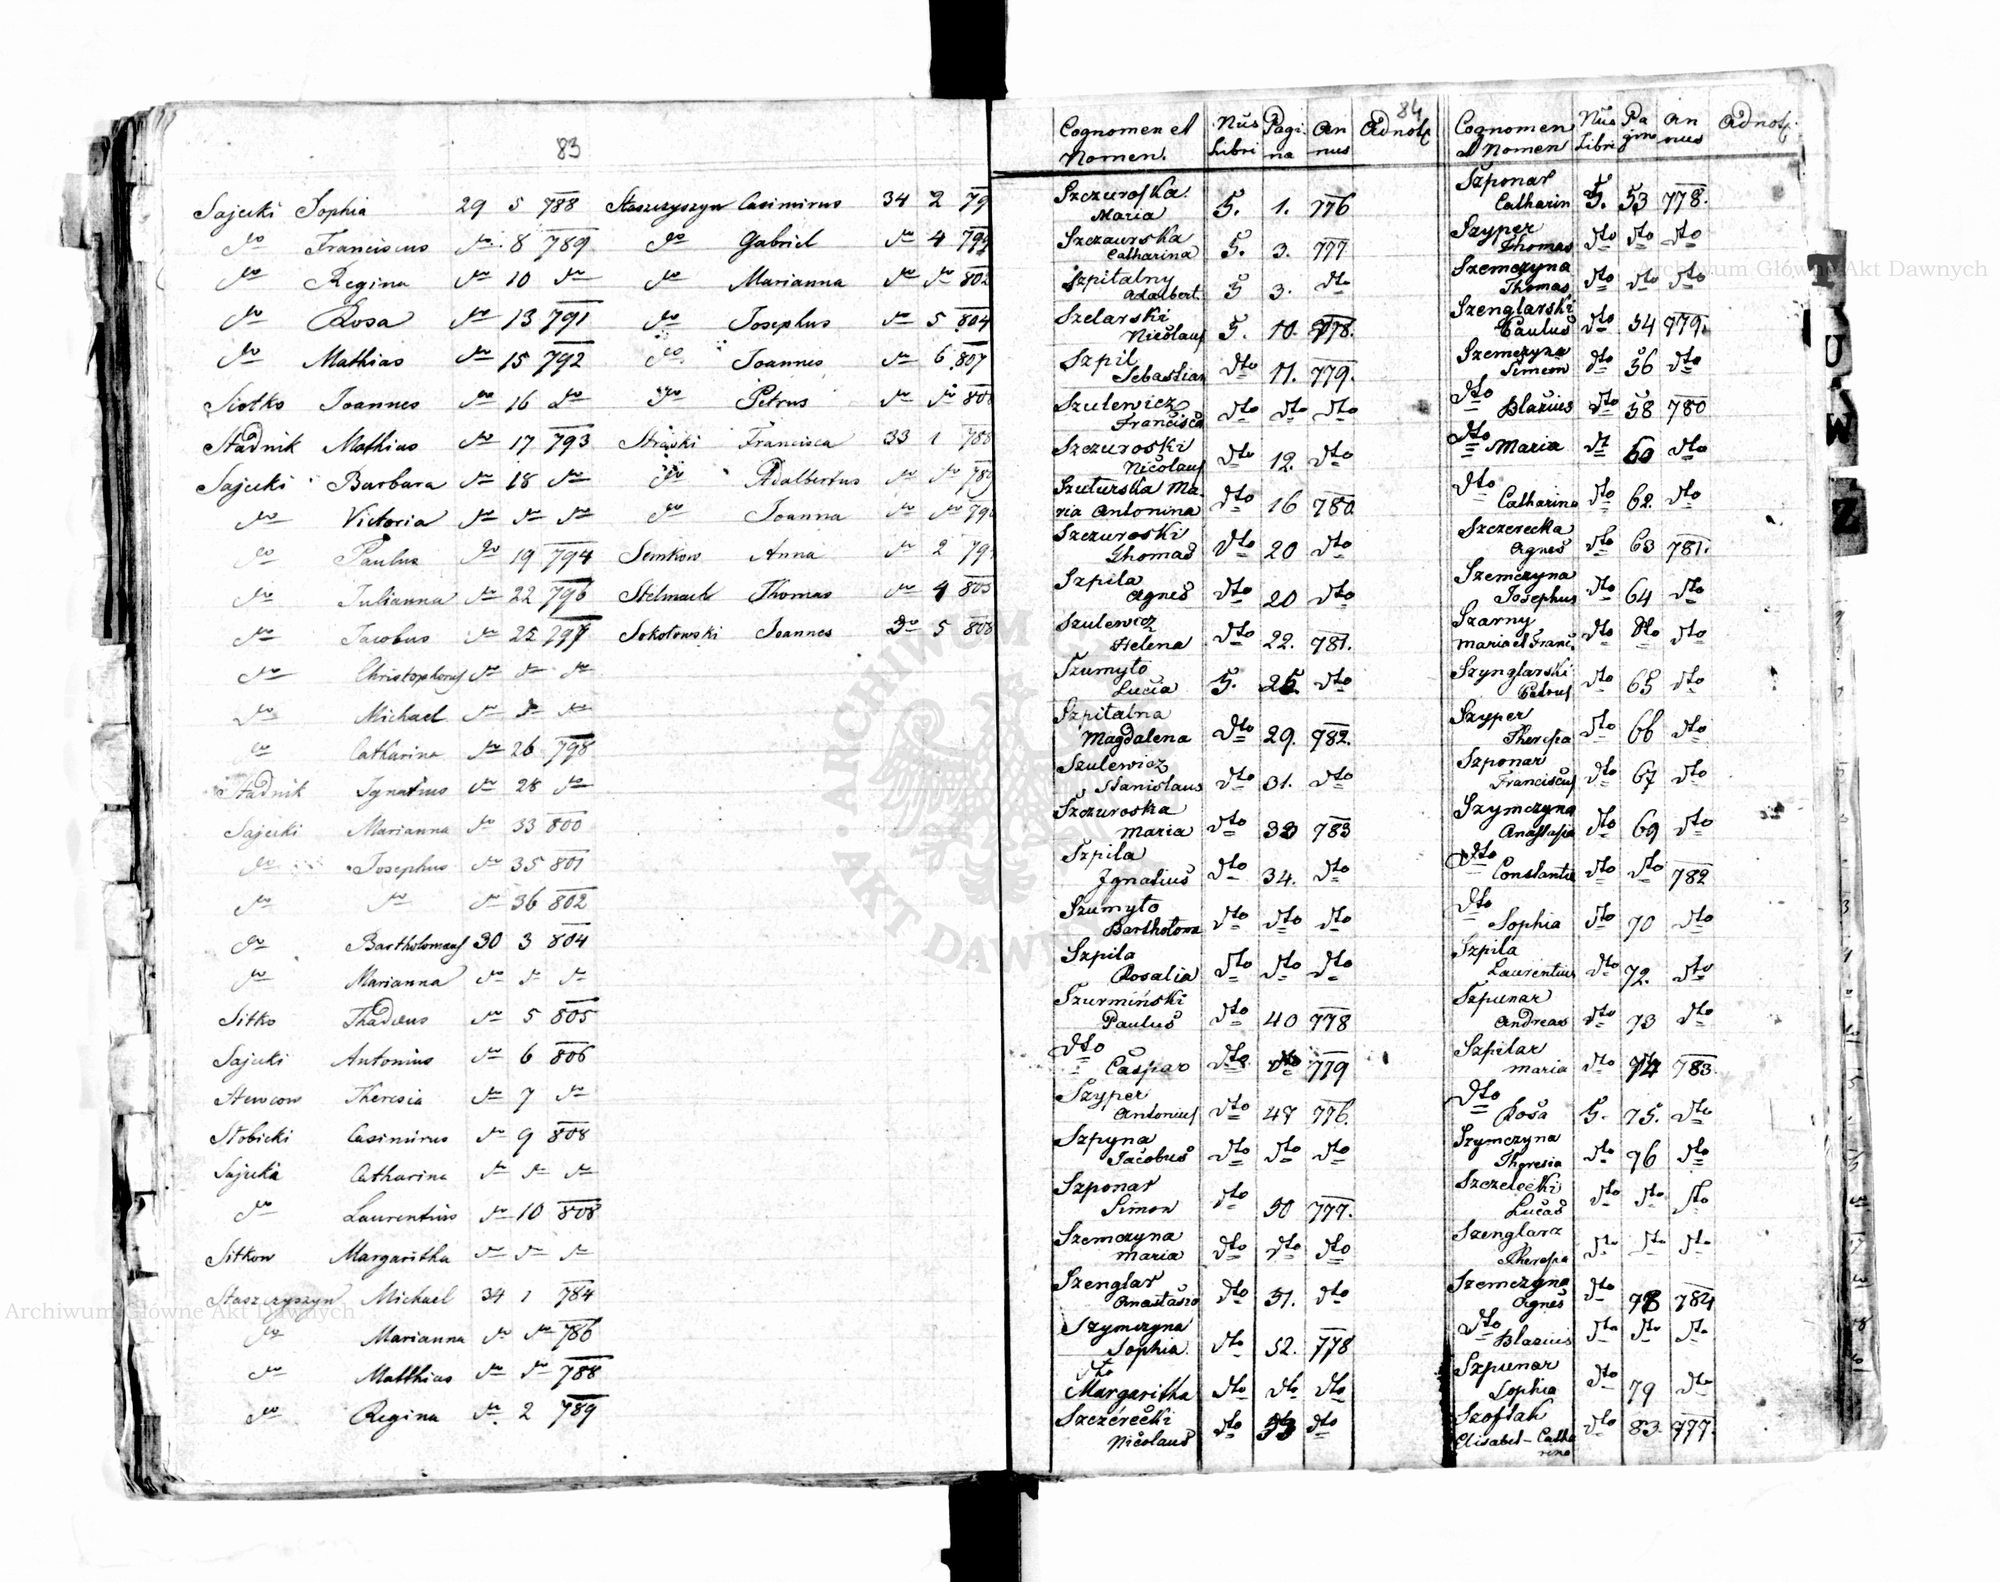 83
Sajecki Sophia 29 5 788
do Franciscus do 8 789
do Regina do 10 do
do Rosa do 13 791
do Mathias do 15 792
Siotko Joannes do 16 do
Stadnik Mathias do 17 793
Sajecki Barbara do 18 do
do Victoria do do do
do Paulus do 19 794
do Julianna do 22 796
do Jacobus do 25 797
do Christophorus do do do
do Michael do do do
do Catharina do 26 798
Stadnik Ignatius do 28 do
Sajecki Marianna do 33 800
do Josephus do 35 801
do do do 36 802
do Bartholomaus 30 3 804
do Marianna do do do
Sitko Thadeus do 5 805
Sajecki Antonius do 6 806
Stewcow Theresia do 7 do
Stobicki Casimirus do 9 808
Sajecka Catharina do do do
do Laurentius do 10 808
Sitkow Margaritha do do do
Staszczyszyn Michael 34 1 784
do Marianna do do 786
do Matthias do do 788
do Regina do 2 789
Staszczyszyn Casimirus 34 2 79
do Gabriel do 4 799
do Marianna do do 802
do Josephus do 5 804
do Joannes do 6 807
do Petrus do do 808
Francisca 33 1 788
do Adalbertus do do 789
do Joanna do do 790
Semkow Anna do 2 79
Stelmach Thomas do 4 805
Sokołowski Joannes do 5 808
84
Cognomen et Nomen. Nus Libri Pagina Annus Adnot.
Szczuroska Maria 5. 1. 776
Szczaurska Catharina 5. 3. 777
Szpitalny Adalbert. 5 3. dto
Szelarski Nicolaus 5. 10. 778.
Szpil Sebastian dto 11. 779.
Szulewicz Francisca dto dto dto
Szczuroski Nicolaus dto 12. dto
Szuturska Maria Antonina dto 16 780
Szczuroski Thomas dto 20 dto
Szpila Agnes dto 20 dto
Szulewicz Helena dto 22. 781.
Szumyto Lucia 5. 25. dto
Szpitalna Magdalena dto 29. 782.
Szulewicz Stanislaus dto 31. dto
Szczuroska Maria dto 33 783
Szpila Ignatius dto 34. dto
Szumyto Bartholoma dto dto dto
Szpila Rosalia dto dto dto
Szurmiński Paulus dto 40 778
dto Caspar dto dto 779
Szyper Antonius dto 47 776.
Szpyna Jacobus dto dto dto
Szponar Simon dto 50 777.
Szemczyna Maria dto dto dto
Szenglar Anastasia dto 51. dto
Szymczyna Sophia. dto 52. 778
dto Margaritha dto dto dto
Szczerecki Nicolaus dto 53 dto
Cognomen et Nomen Nus Libri Pagina Annus Adnot.
Szponar Catharin 5. 53 778.
Szyper Thomas dto dto dto
Szemczyna Thomas dto dto dto
Szenglarski Paulus dto 54 779.
Szemczyna Simeon dto 56 dto
dto Blasius dto 58 780
dto Maria dt 60 dto
dto Catharina dto 62. dto
Szczerecka Agnes dto 63 781.
Szemczyna Josephus dto 64 dto
Szarny Maria et Franc. dto dto dto
Szynglarski Petrus dto 65 dto
Szyper Theresia dto 66 dto
Szponar Franciscus dto 67 dto
Szymczyna Anastasia dto 69 dto
dto Constantia dto dto 782
dto Sophia dto 70 dto
Szpila Laurentius dto 72. dto
Szpunar Andreas dto 73 dto
Szpilar Maria dto 74 783.
dto Rosa 5. 75. dto
Szymczyna Theresia dto 76 dto
Szczelecki Lucas dto dto dto
Szenglarz Theresia dto dto dto
Szemczyna Agnes dto 78 784
dto Blasius dto dto dto
Szpunar Sophia dto 79 dto
Szostak Elisabet-Catharina dto 83. 777.
T
U
W
Z
ARCHIWUM GŁÓWNE AKT DAWNYCH
Archiwum Główne Akt Dawnych
Archiwum Główne Akt Dawnych